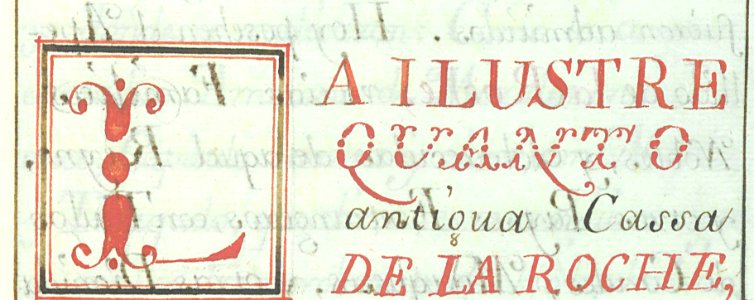 LA ILUSTRE
QUANTO
antigua Cassa
DE LA ROCHE,